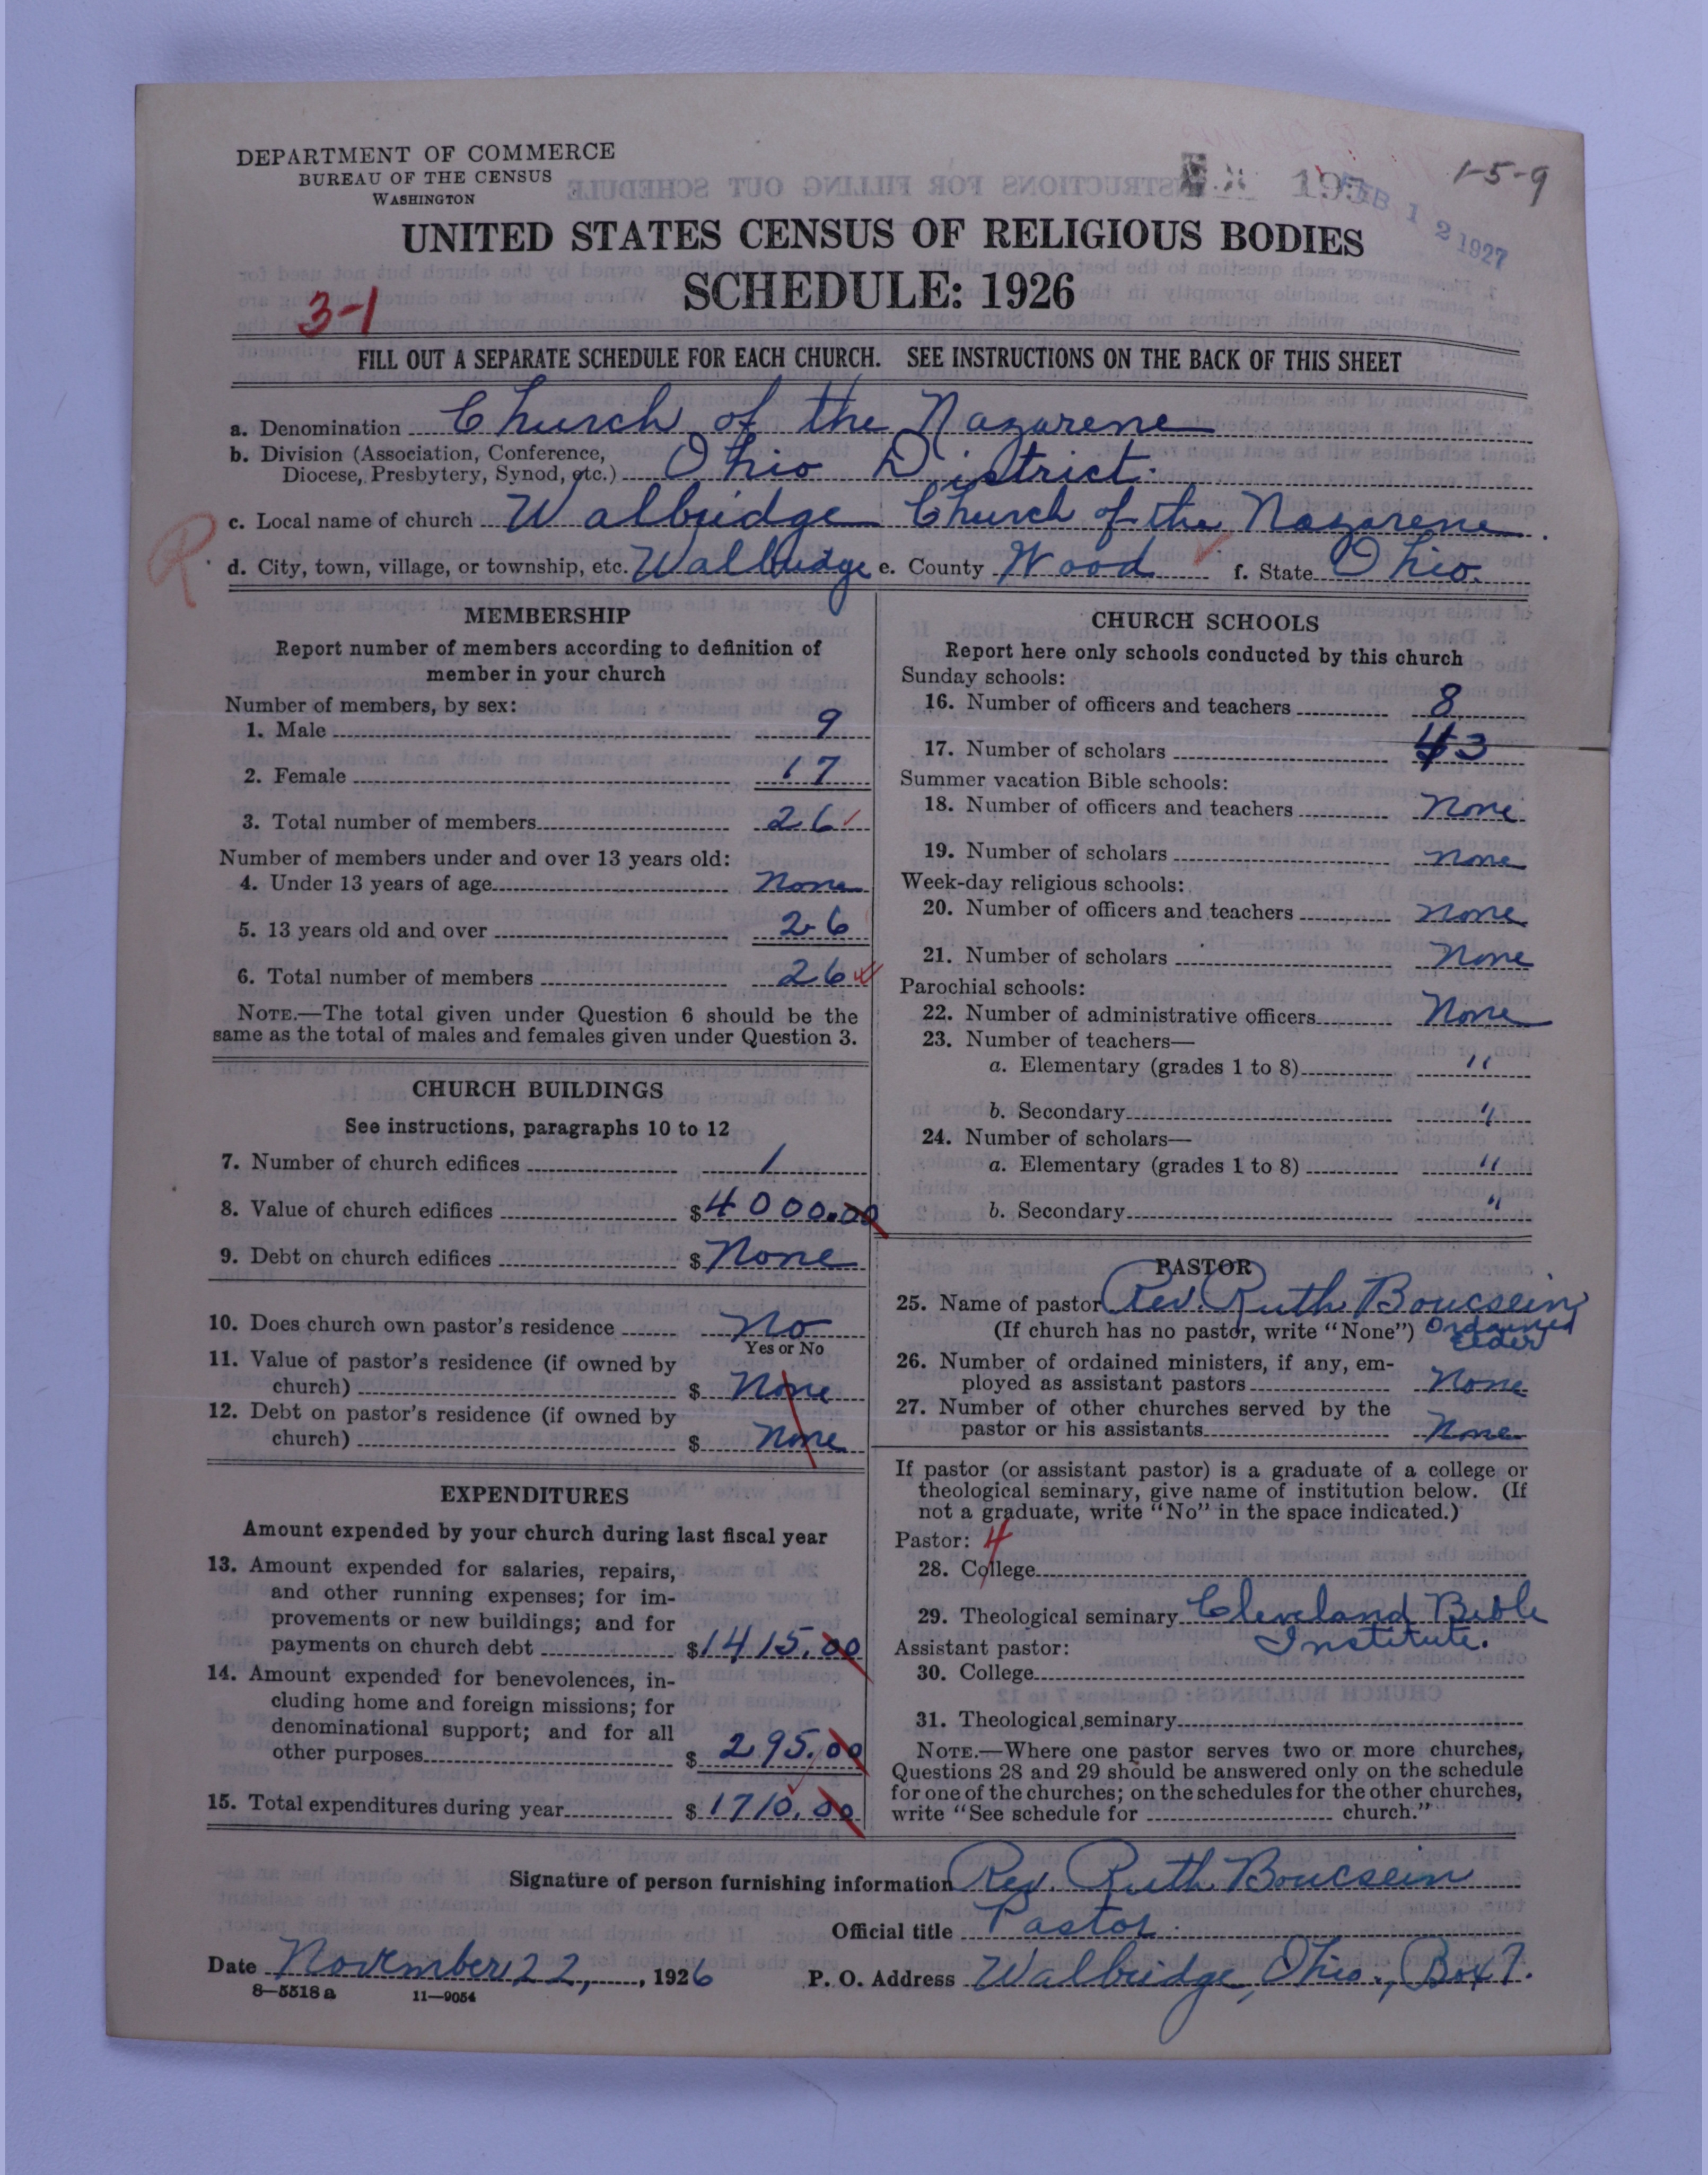 DEPARTMENT OF COMMERCE
BUREAU OF THE CENSUS
WASHINGTON
1-5-9
FEB 12 1927
UNITED STATES CENSUS OF RELIGIOUS BODIES
SCHEDULE: 1926
3-1
FILL OUT A SEPARATE SCHEDULE FOR EACH CHURCH. SEE INSTRUCTIONS ON THE BACK OF THIS SHEET
a. Denomination Church of the Nazarene
b. Division (Association, Conference,
Diocese, Presbytery, Synod, etc.) Ohio District.
c. Local name of church Walbridge Church of the Nazarene.
R
d. City, town, village, or township, etc. Walbridge e. County Wood f. State Ohio.
MEMBERSHIP
Report number of members according to definition of
member in your church
Number of members, by sex:
1. Male 9
2. Female 17
3. Total number of members 26
Number of members under and over 13 years old:
4. Under 13 years of age None
5. 13 years old and over 26
6. Total number of members 26
NOTE.—The total given under Question 6 should be the
same as the total of males and females given under Question 3.
CHURCH BUILDINGS
See instructions, paragraphs 10 to 12
7. Number of church edifices 1
8. Value of church edifices $4000.00
9. Debt on church edifices $ None
10. Does church own pastor's residence No
Yes or No
11. Value of pastor's residence (if owned by
church) $ None
12. Debt on pastor's residence (if owned by
church) $ None
EXPENDITURES
Amount expended by your church during last fiscal year
13. Amount expended for salaries, repairs,
and other running expenses; for im-
provements or new buildings; and for
payments on church debt $1415.00
14. Amount expended for benevolences, in-
cluding home and foreign missions; for
denominational support; and for all
other purposes $ 295.00
15. Total expenditures during year $ 1710.00
CHURCH SCHOOLS
Report here only schools conducted by this church
Sunday schools:
16. Number of officers and teachers 8
17. Number of scholars 43
Summer vacation Bible schools:
18. Number of officers and teachers None
19. Number of scholars None
Week-day religious schools:
20. Number of officers and teachers None
21. Number of scholars None
Parochial schools:
22. Number of administrative officers None
23. Number of teachers—
a. Elementary (grades 1 to 8) "
b. Secondary "
24. Number of scholars—
a. Elementary (grades 1 to 8) "
b. Secondary "
PASTOR
25. Name of pastor Rev. Ruth Boucsein
(If church has no pastor, write "None") Ordained
Elder
26. Number of ordained ministers, if any, em-
ployed as assistant pastors None
27. Number of other churches served by the
pastor or his assistants None
If pastor (or assistant pastor) is a graduate of a college or
theological seminary, give name of institution below. (If
not a graduate, write "No" in the space indicated.)
Pastor: 4
28. College
29. Theological seminary Cleveland Bible
Institute.
Assistant pastor:
30. College
31. Theological seminary
NOTE.—Where one pastor serves two or more churches,
Questions 28 and 29 should be answered only on the schedule
for one of the churches; on the schedules for the other churches,
write "See schedule for church."
Signature of person furnishing information Rev. Ruth Boucsein
Official title Pastor.
Date November 22, 1926 P. O. Address Walbridge, Ohio., Box 7.
8—5518 a 11—9054